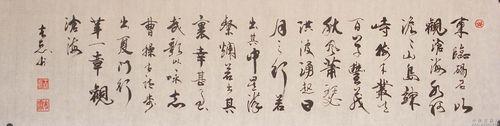 東臨碣石以
觀滄海水何
澹澹山島竦
峙樹木叢生
百草豐茂
秋風蕭瑟
洪波湧起日
月之行若
出其中星漢
燦爛若出其
裏幸甚至
哉歌以咏志
曹操古詩步
出夏門行
第一章觀
滄海